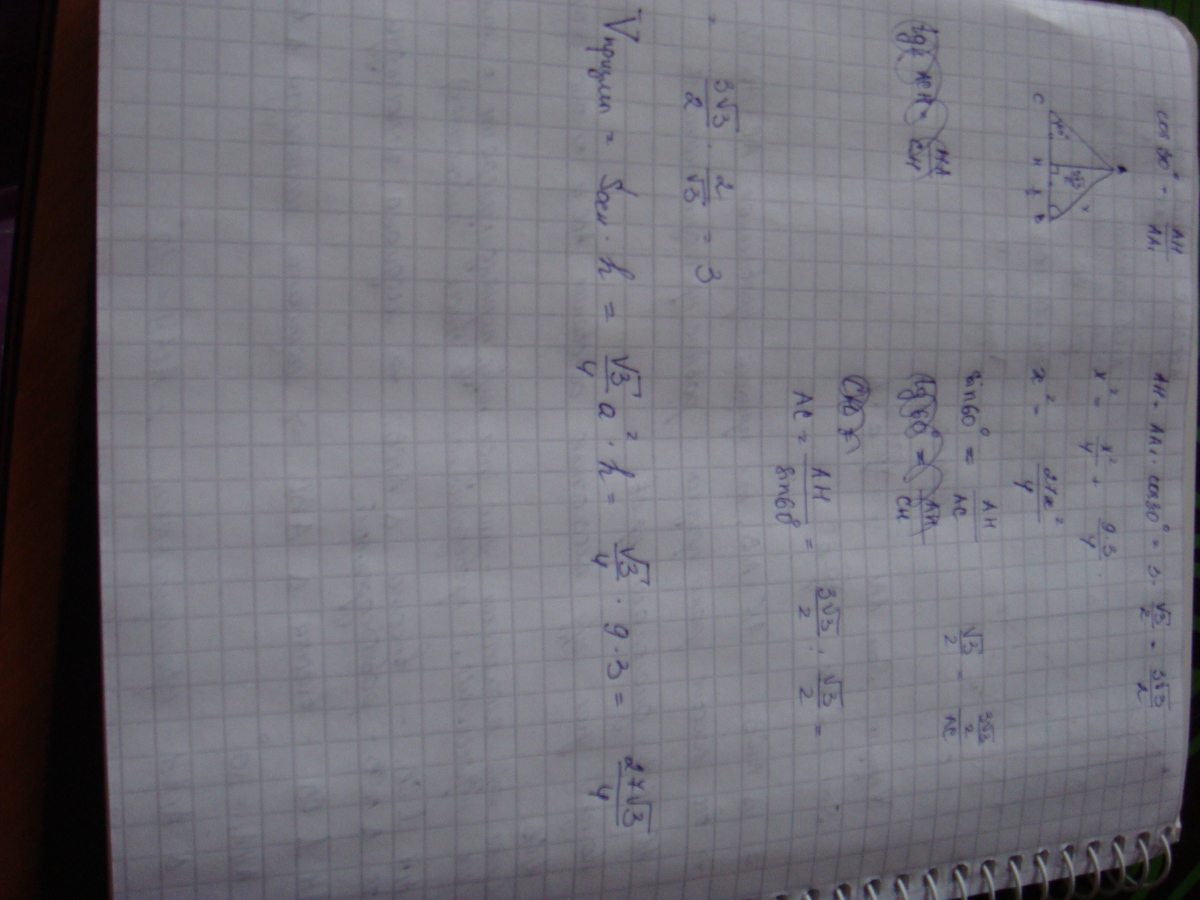 cos 30° = AH/AA₁
AH = AA₁ · cos30° = 3 · √3/2 = 3√3/2
C H B
x² = x²/4 + 9·3/4
x² = 27x²/4
sin60° = AH/AC
√3/2 = 3√3/2 / AC
tg 60° = AH/CH
AC = AH/sin60° = 3√3/2 : √3/2 =
= 3√3/2 · 2/√3 = 3
Vпризмы = Sосн · h = √3/4 a² · h = √3/4 · 9·3 = 27√3/4